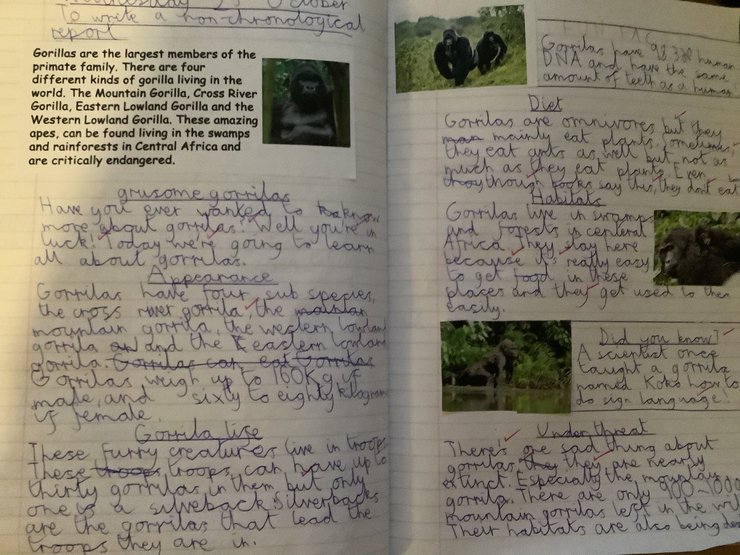 Wednesday 23 October
To write a non-chronological
report
Gorillas are the largest members of the
primate family. There are four
different kinds of gorilla living in the
world. The Mountain Gorilla, Cross River
Gorilla, Eastern Lowland Gorilla and the
Western Lowland Gorilla. These amazing
apes, can be found living in the swamps
and rainforests in Central Africa and
are critically endangered.
grusome gorrilas
Have you ever wanted to know
more about gorrilas? Well you're in
luck! Today we're going to learn
all about gorrilas.
Appearance
Gorrilas have four sub species,
the cross river gorrila, the
mountain gorrila, the western lowland
gorrila and the eastern lowland
gorrila. Gorrilas can eat Gorrilas
Gorrilas weigh up to 160kg if
male, and sixty to eighty kilograms
if female.
Gorrila life
These furry creatures live in troops.
These troops troops can have up to
thirty gorrilas in them but only
one is a silverback. Silverbacks
are the gorrilas that lead the
troops they are in.
Gorrilas have 98.3% human
DNA and have the same
amount of teeth as a human
Diet
Gorrilas are omnivores but they
mainly eat plants, sometimes,
they eat ants as well but not as
much as they eat plants. Even
though books say this, they dont eat
Habitats
Gorrilas live in swamps
and forests in centeral
Africa. They stay here
because it's really easy
to get food in these
places and they get used to them
easily.
Did you know?
A scientist once
taught a gorrila
named Koko how to
do sign language!
Under threat
There's one sad thing about
gorrilas, they they are nearly
extinct. Especially the mountain
gorrila. There are only
mountain gorrilas left in the wild
Their habitats are also being